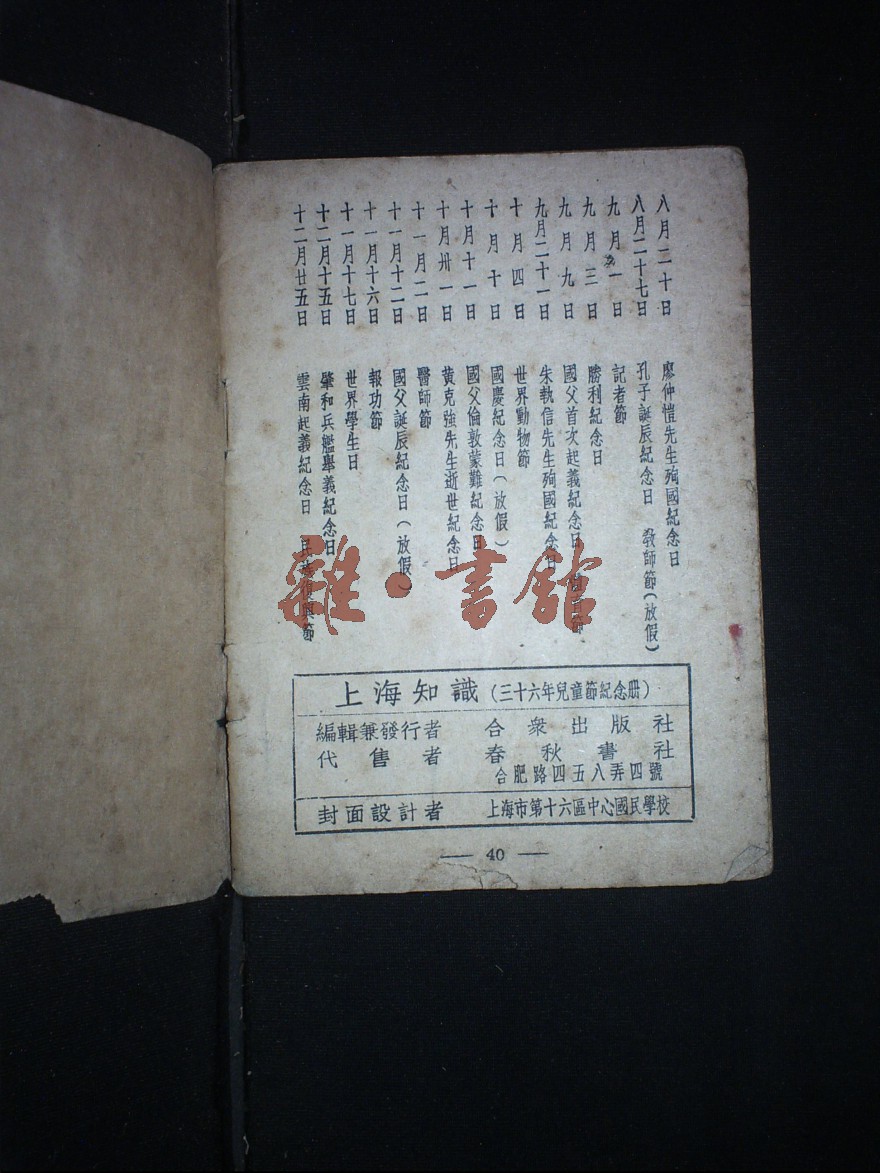 八月二十日 廖仲愷先生殉國紀念日
八月二十七日 孔子誕辰紀念日 教師節(放假)
九月一日 記者節
九月三日 勝利紀念日
九月九日 國父首次起義紀念日 體育節
九月二十一日 朱執信先生殉國紀念日
十月四日 世界動物節
十月十日 國慶紀念日(放假)
十月十一日 國父倫敦蒙難紀念日
十月卅一日 黃克強先生逝世紀念日
十一月二日 醫師節
十一月十二日 國父誕辰紀念日(放假)
十一月十六日 報功節
十一月十七日 世界學生日
十二月十五日 肇和兵艦舉義紀念日
十二月廿五日 雲南起義紀念日 民族復興節
雜·書館
上海知識(三十六年兒童節紀念册)
編輯兼發行者 合衆出版社
代售者 春秋書社
合肥路四五八弄四號
封面設計者 上海市第十六區中心國民學校
— 40 —